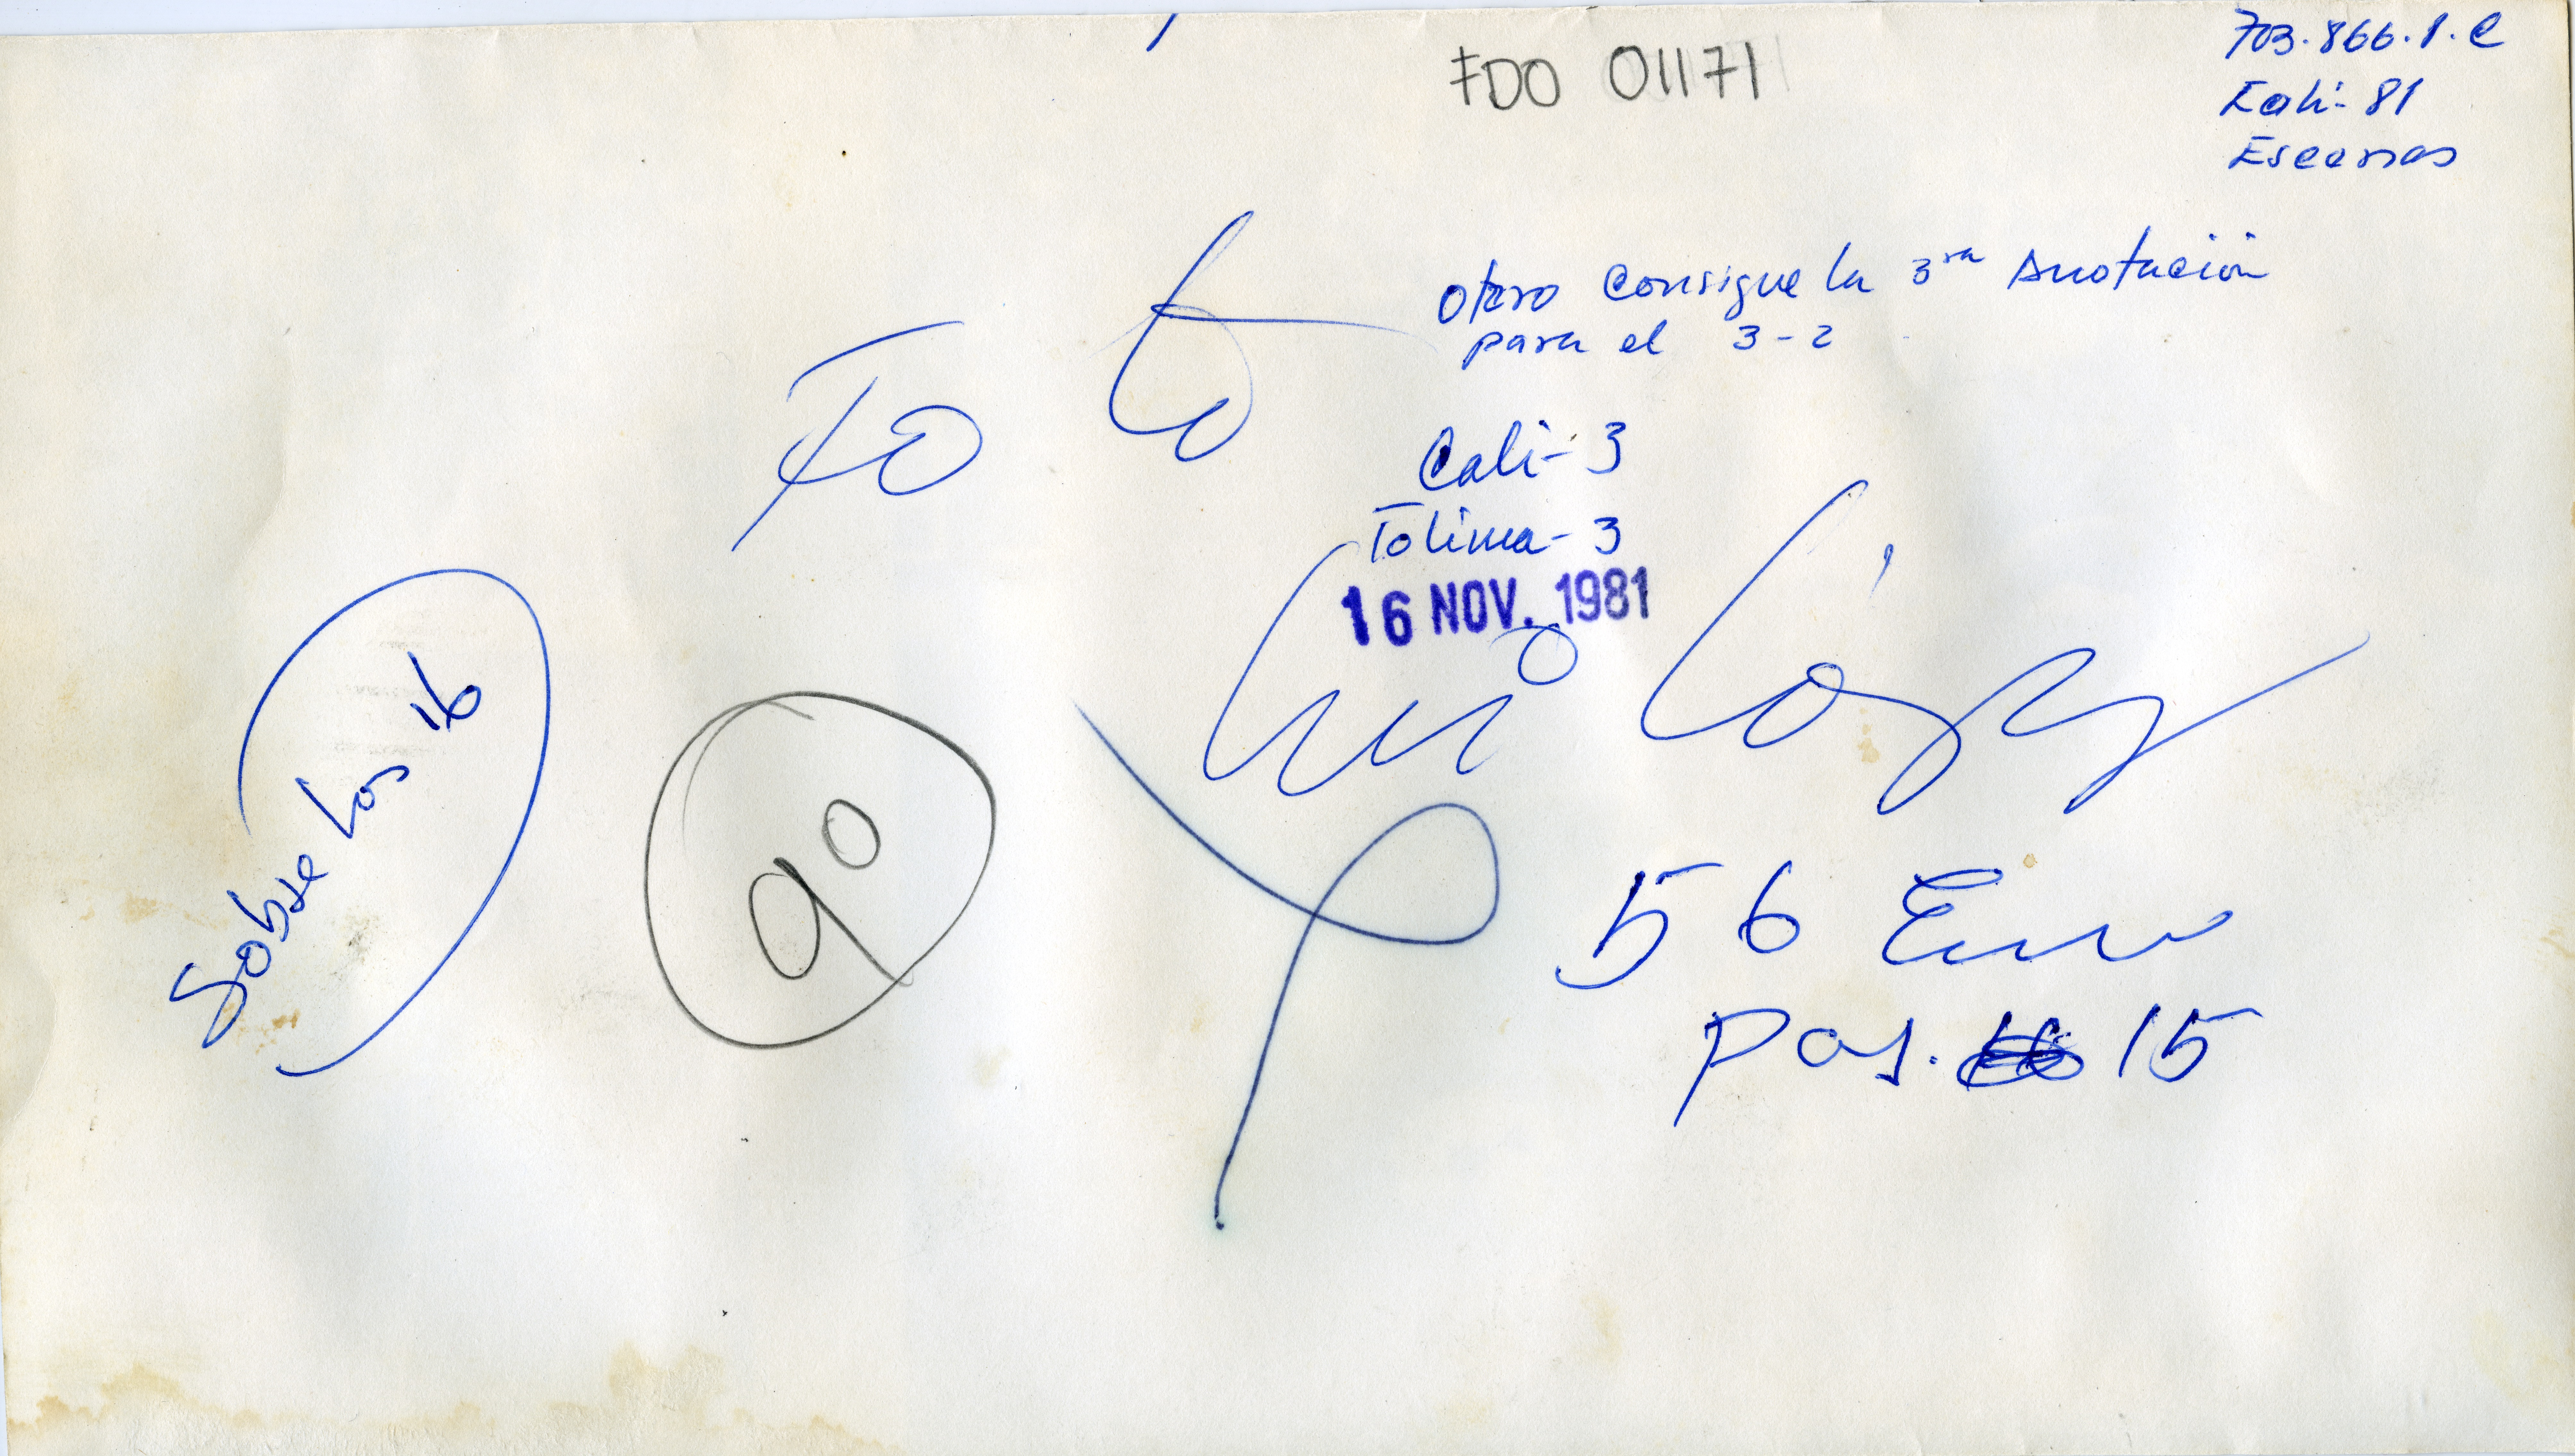 FDO 01171
703.866.1.C
Cali-81
Escenas
Otero consigue la 3ra Anotación
para el 3-2
Foto
Cali-3
Tolima-3
16 NOV. 1981
Luis López
Sobre los 16
90
56 Em
Pos. 15